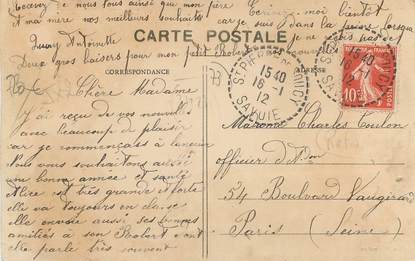 Recevez je nous tous ainsi que mon père
et ma mère nos meilleurs souhaits
Jeuny Antoinette
Doux gros baisers pour mon petit Robert
Écrivez moi bientôt
car je suis dans la joie lorsque
je reçois
CARTE POSTALE
CORRESPONDANCE
ADRESSE
73
ST PIERRE
15 40
16 - 1
12
SAVOIE
15 40
16
SA
10
Chère Madame
J'ai reçu de vos nouvelles
avec beaucoup de plaisir
car je commençais à languir
Nous vous souhaitons aussi
une bonne année et santé
Alice est très grande et forte
elle va toujours en classe
elle envoie aussi ses bonnes
amitiés à son Robert dont
elle parle très souvent
Madame Charles Coulon
officier d'
54 Boulevard Vaugirard
Paris (Seine)